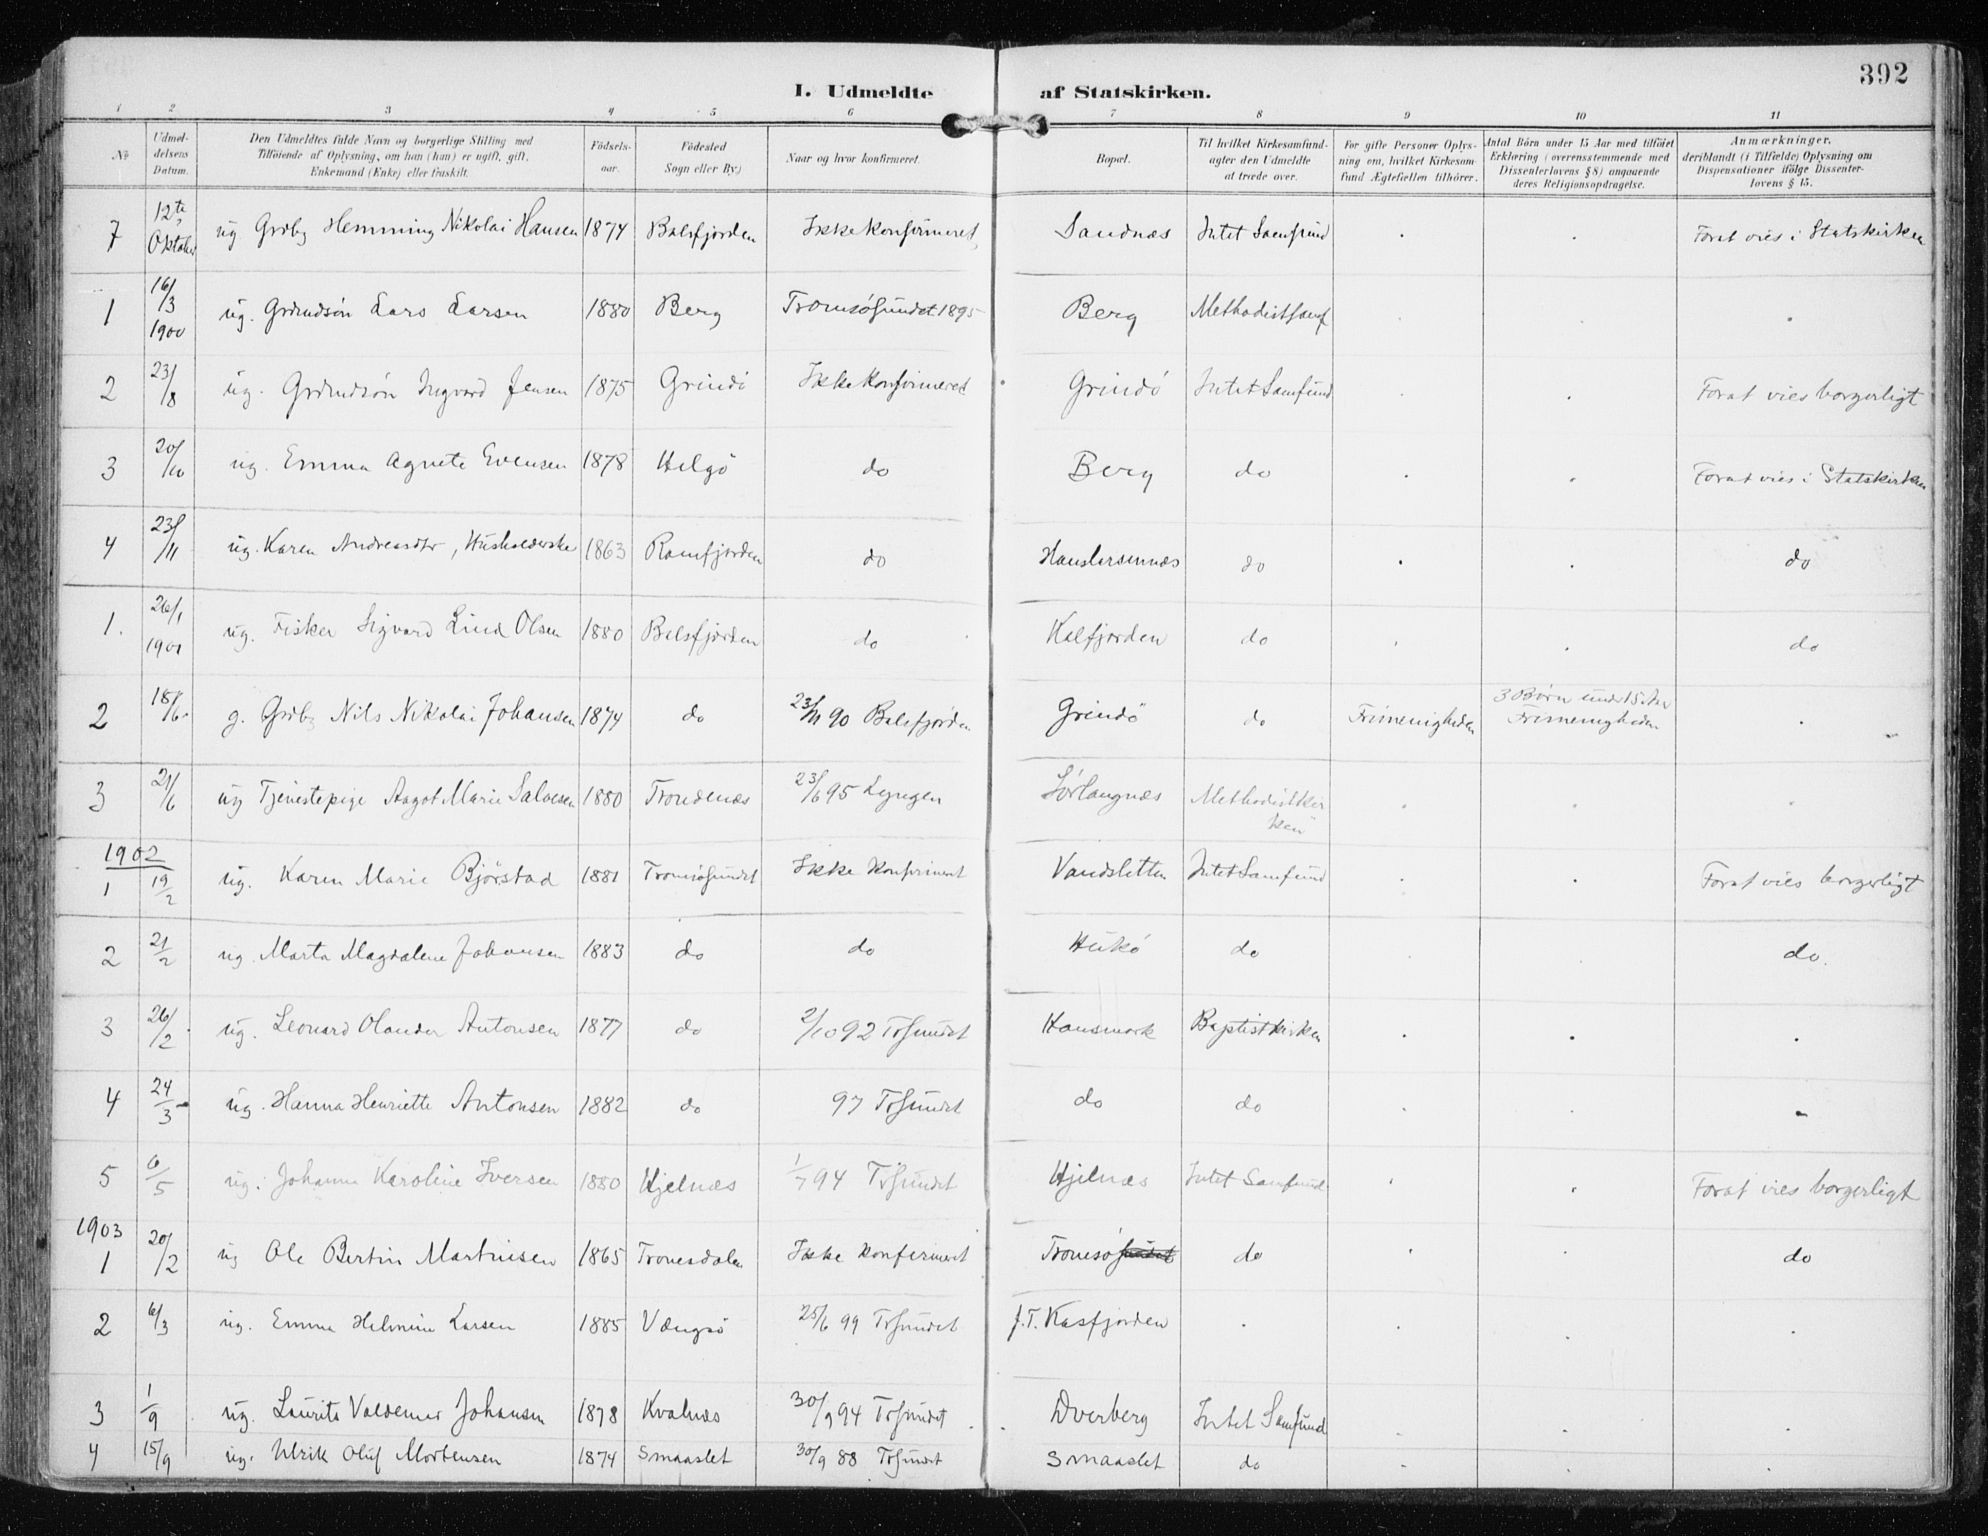 392
I. Udmeldte af Statskirken.
1 2 3 4 5 6 7 8 9 10 11
№ | Udmeldelsens Datum. | Den Udmeldtes fulde Navn og borgerlige Stilling med Tilføiende af Oplysning, om han (hun) er ugift, gift, Enkemand (Enke) eller fraskilt. | Födsels-aar. | Födested Sogn eller By.) | Naar og hvor konfirmeret. | Bopæl. | Til hvilket Kirkesamfund agter den Udmeldte at træde over. | For gifte Personer Oplysning om, hvilket Kirkesamfund Ægtefællen tilhörer. | Antal Börn under 15 Aar med tilföiet Erklæring (overensstemmende med Dissenterlovens § 8) angaaende deres Religionsopdragelse. | Anmærkninger, deriblandt (i Tilfælde) Oplysning om Dispensationer ifölge Dissenterlovens § 15.
7 | 12te Oktober | ug Grdbg Hemming Nikolai Hansen | 1874 | Balsfjorden | Ikke konfirmeret | Sandnæs | Intet Samfund | . | . | Forat vies i Statskirken
1 | 16/3 1900 | ug. Grdmdsøn Lars Larsen | 1880 | Berg | Tromsøsundet 1895 | Berg | Methodistsamf | . | . | .
2 | 23/8 | ug. Grdmdsön Ingvard Jensen | 1875 | Grindö | Ikke Konfirmeret | Grindö | Intet Samfund | . | . | Forat vies borgerligt
3 | 20/10 | ug. Emma Agnete Evensen | 1878 | Helgö | do | Berg | do | . | . | Forat vies i Statskirken
4 | 23/11 | ug. Karen Andreasdtr, Husholderske | 1863 | Ramfjorden | do | Hanslarsennæs | do | . | . | do
1. | 26/1 1901 | ug. Fisker Sigvard Lind Olsen | 1880 | Balsfjorden | do | Kalfjorden | do | . | . | do
2 | 18/6. | g. Grdbg Nils Nikolai Johansen | 1874 | do | 23/11 90 Balsfjorden | Grindö | do | Frimenigheden | 3 Børn under 15 Aar Frimenigheden | .
3 | 21/6 | ug Tjenestepige Aagot Marie Salvesen | 1880 | Trondenæs | 23/6 95 Lyngen | Sørlangnæs | Methodistkirken | . | . | .
1902
1 | 19/2 | ug. Karen Marie Bjørstad | 1881 | Tromsøsundet | Ikke konfirmeret | Vandsletten | Intet Samfund | . | . | Forat vies borgerligt
2 | 21/2 | ug. Marta Magdalene Johansen | 1883 | do | do | Hukö | do | . | . | do.
3 | 26/2. | ug. Leonard Olander Antonsen | 1877 | do | 2/10 92 TrSundet | Hansmark | Baptistkirken | . | . | .
4 | 24/3 | ug. Hanna Henriette Antonsen | 1882 | do | 97 TrSundet | do | do | . | . | -
5 | 6/5 | ug. Johanna Karoline Iversen | 1880 | Hjelnæs | 1/7 94 TrSundet | Hjelnæs | Intet Samfund | . | . | Forat vies borgerligt
1903
1 | 20/2 | ug Ole Bertin Martinsen | 1865 | Tromsdalen | Ikke konfirmeret | Tromsösundet | do | . | . | do
2 | 6/3 | ug. Emma Helmine Larsen | 1885 | Vængsö | 25/6 99 TrSundet | f.T. Kasfjorden | . | . | . | .
3 | 1/9 | ug. Laurits Valdemar Johansen | 1878 | Kvalnæs | 30/9 94 TrSundet | Dverberg | Intet Samfund | . | . | .
4 | 15/9 | ug. Ulrik Oluf Mortensen | 1874 | Smaaslet | 30/9 88 TrSundet | Smaaslet | do | . | . | .